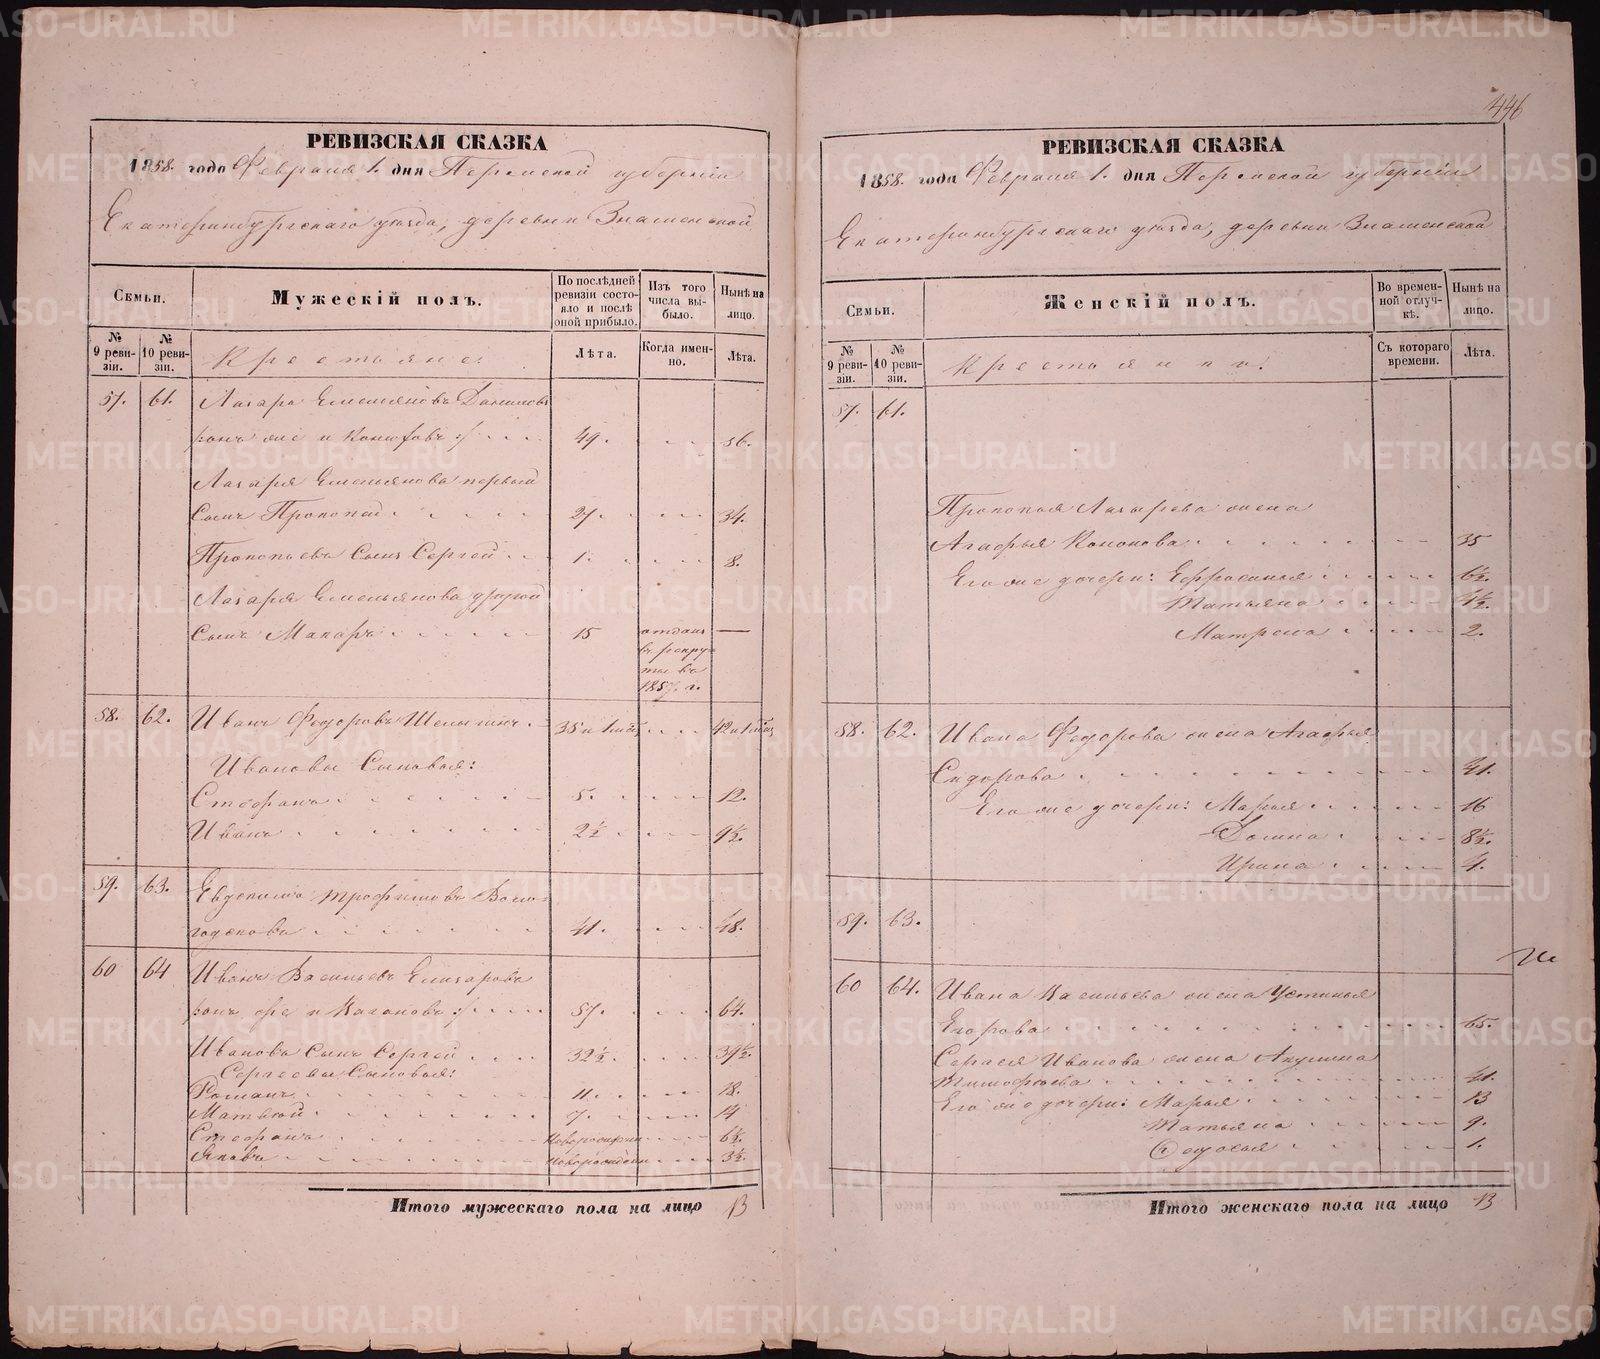 РЕВИЗСКАЯ СКАЗКА
1858. года Февраля 1. дня Пермской губерніи
Екатеринбургскаго уѣзда, деревни Знаменской
Семьи.
Мужескій полъ.
По послѣдней ревизіи состояло и послѣ оной прибыло.
Изъ того числа выбыло.
Нынѣ на лицо.
№ 9 ревизіи.
№ 10 ревизіи.
Крестьяне:
Лѣта.
Когда именно.
Лѣта.
57. 61. Лазарь Емельяновъ
онъ же и 49. 56.
Лазаря Емельянова первый
сынъ Прокопій 27. 34.
Прокопьевъ сынъ Сергей 1. 8.
Лазаря Емельянова другой
сынъ Макаръ 15 отданъ —
въ рекру-
ты въ
1857. г.
58. 62. Иванъ Федоровъ
Ивановы сыновья:
Стефанъ 5. 12.
Иванъ 2½ 9½.
59. 63. Евдокимъ Трофимовъ
41. 48.
60 64 Иванъ Васильевъ Елизаровъ
онъ же и 57. 64.
Иванова сынъ Сергей 32½. 39½.
Сергеевы сыновья:
Романъ 11. 18.
Матвей 7. 14
Стефанъ новорожден 6½.
Яковъ новорожден 3½.
Итого мужескаго пола на лицо 13
446
РЕВИЗСКАЯ СКАЗКА
1858. года Февраля 1. дня Пермской губерніи
Екатеринбургскаго уѣзда, деревни Знаменской
Семьи.
Женскій полъ.
Во временной отлучкѣ.
Нынѣ на лицо.
№ 9 ревизіи.
№ 10 ревизіи.
Крестьянки:
Съ котораго времени.
Лѣта.
57. 61.
Прокопья Лазарева жена
Агафья Кононова 35
Его же дочери: Ефросинья 6½.
Татьяна 4½.
Матрена 2.
58. 62. Ивана Федорова жена Агафья
Сидорова 41.
Его же дочери: Марья 16
Домна 8½.
Ирина 4.
59. 63.
60 64. Ивана Васильева жена Устинья
Егорова 65.
Сергея Иванова жена Акулина
Тимофеева 41.
Его же дочери: Марья 13
Татьяна 9.
Федосья 1.
Итого женскаго пола на лицо 13
METRIKI.GASO-URAL.RU